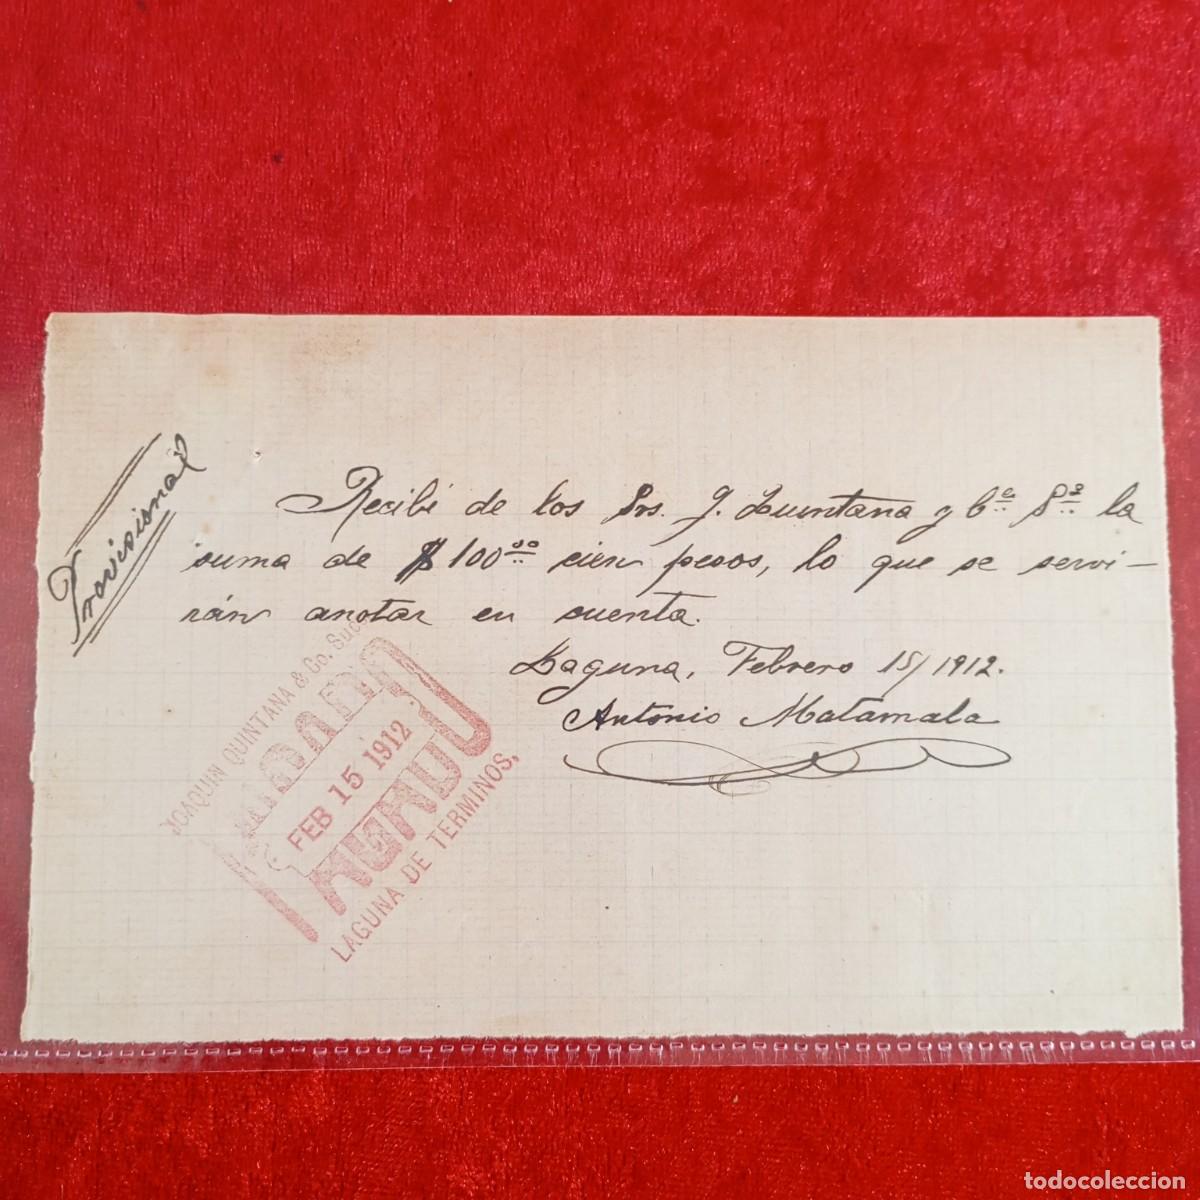 Provisional
Recibí de los Srs. J. Quintana y Cª Sª la
suma de $ 100°° cien pesos, lo que se servi-
rán anotar en cuenta.
Laguna, Febrero 15/1912.
Antonio Matamala
JOAQUIN QUINTANA & Co. Sucs
FEB 15 1912
LAGUNA DE TERMINOS,
todocoleccion